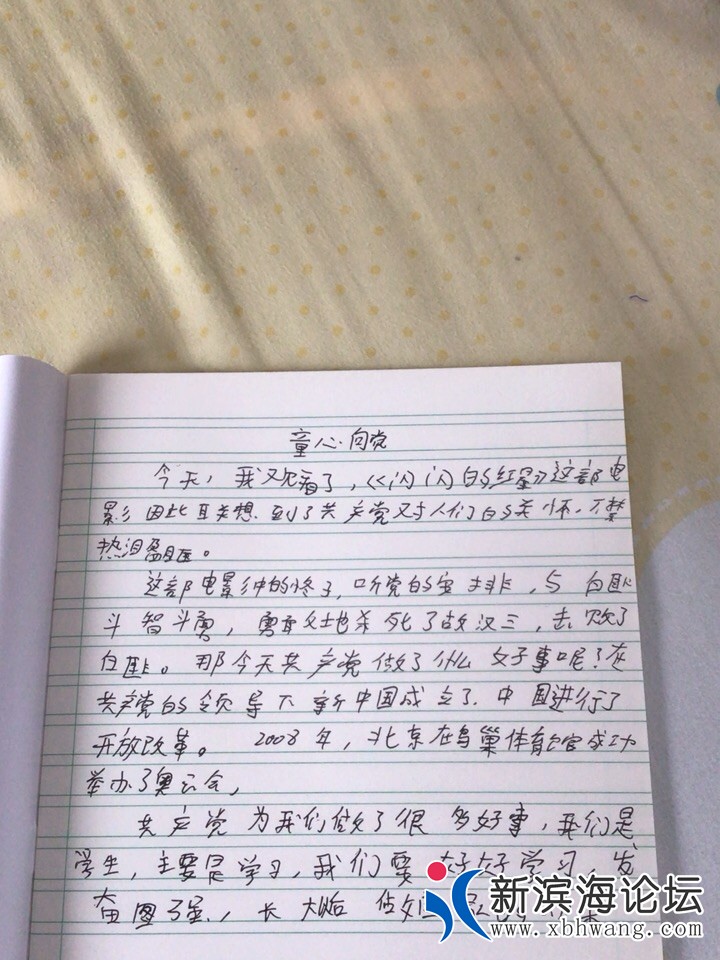 童心向党
今天，我观看了，《闪闪的红星》这部电
影因此联想到了共产党对人们的关怀，不禁
热泪盈眶。
这部电影中的冬子，听党的安排，与白匪
斗智斗勇，勇敢地杀死了胡汉三，击败了
白匪。那今天共产党做了什么好事呢？在
共产党的领导下新中国成立了，中国进行了
开放改革。2008年，北京在鸟巢体育馆成功
举办了奥运会，
共产党为我们做了很多好事，我们是
学生，主要是学习，我们要好好学习，发
奋图强，长大后做
新滨海论坛
www.xbhwang.com